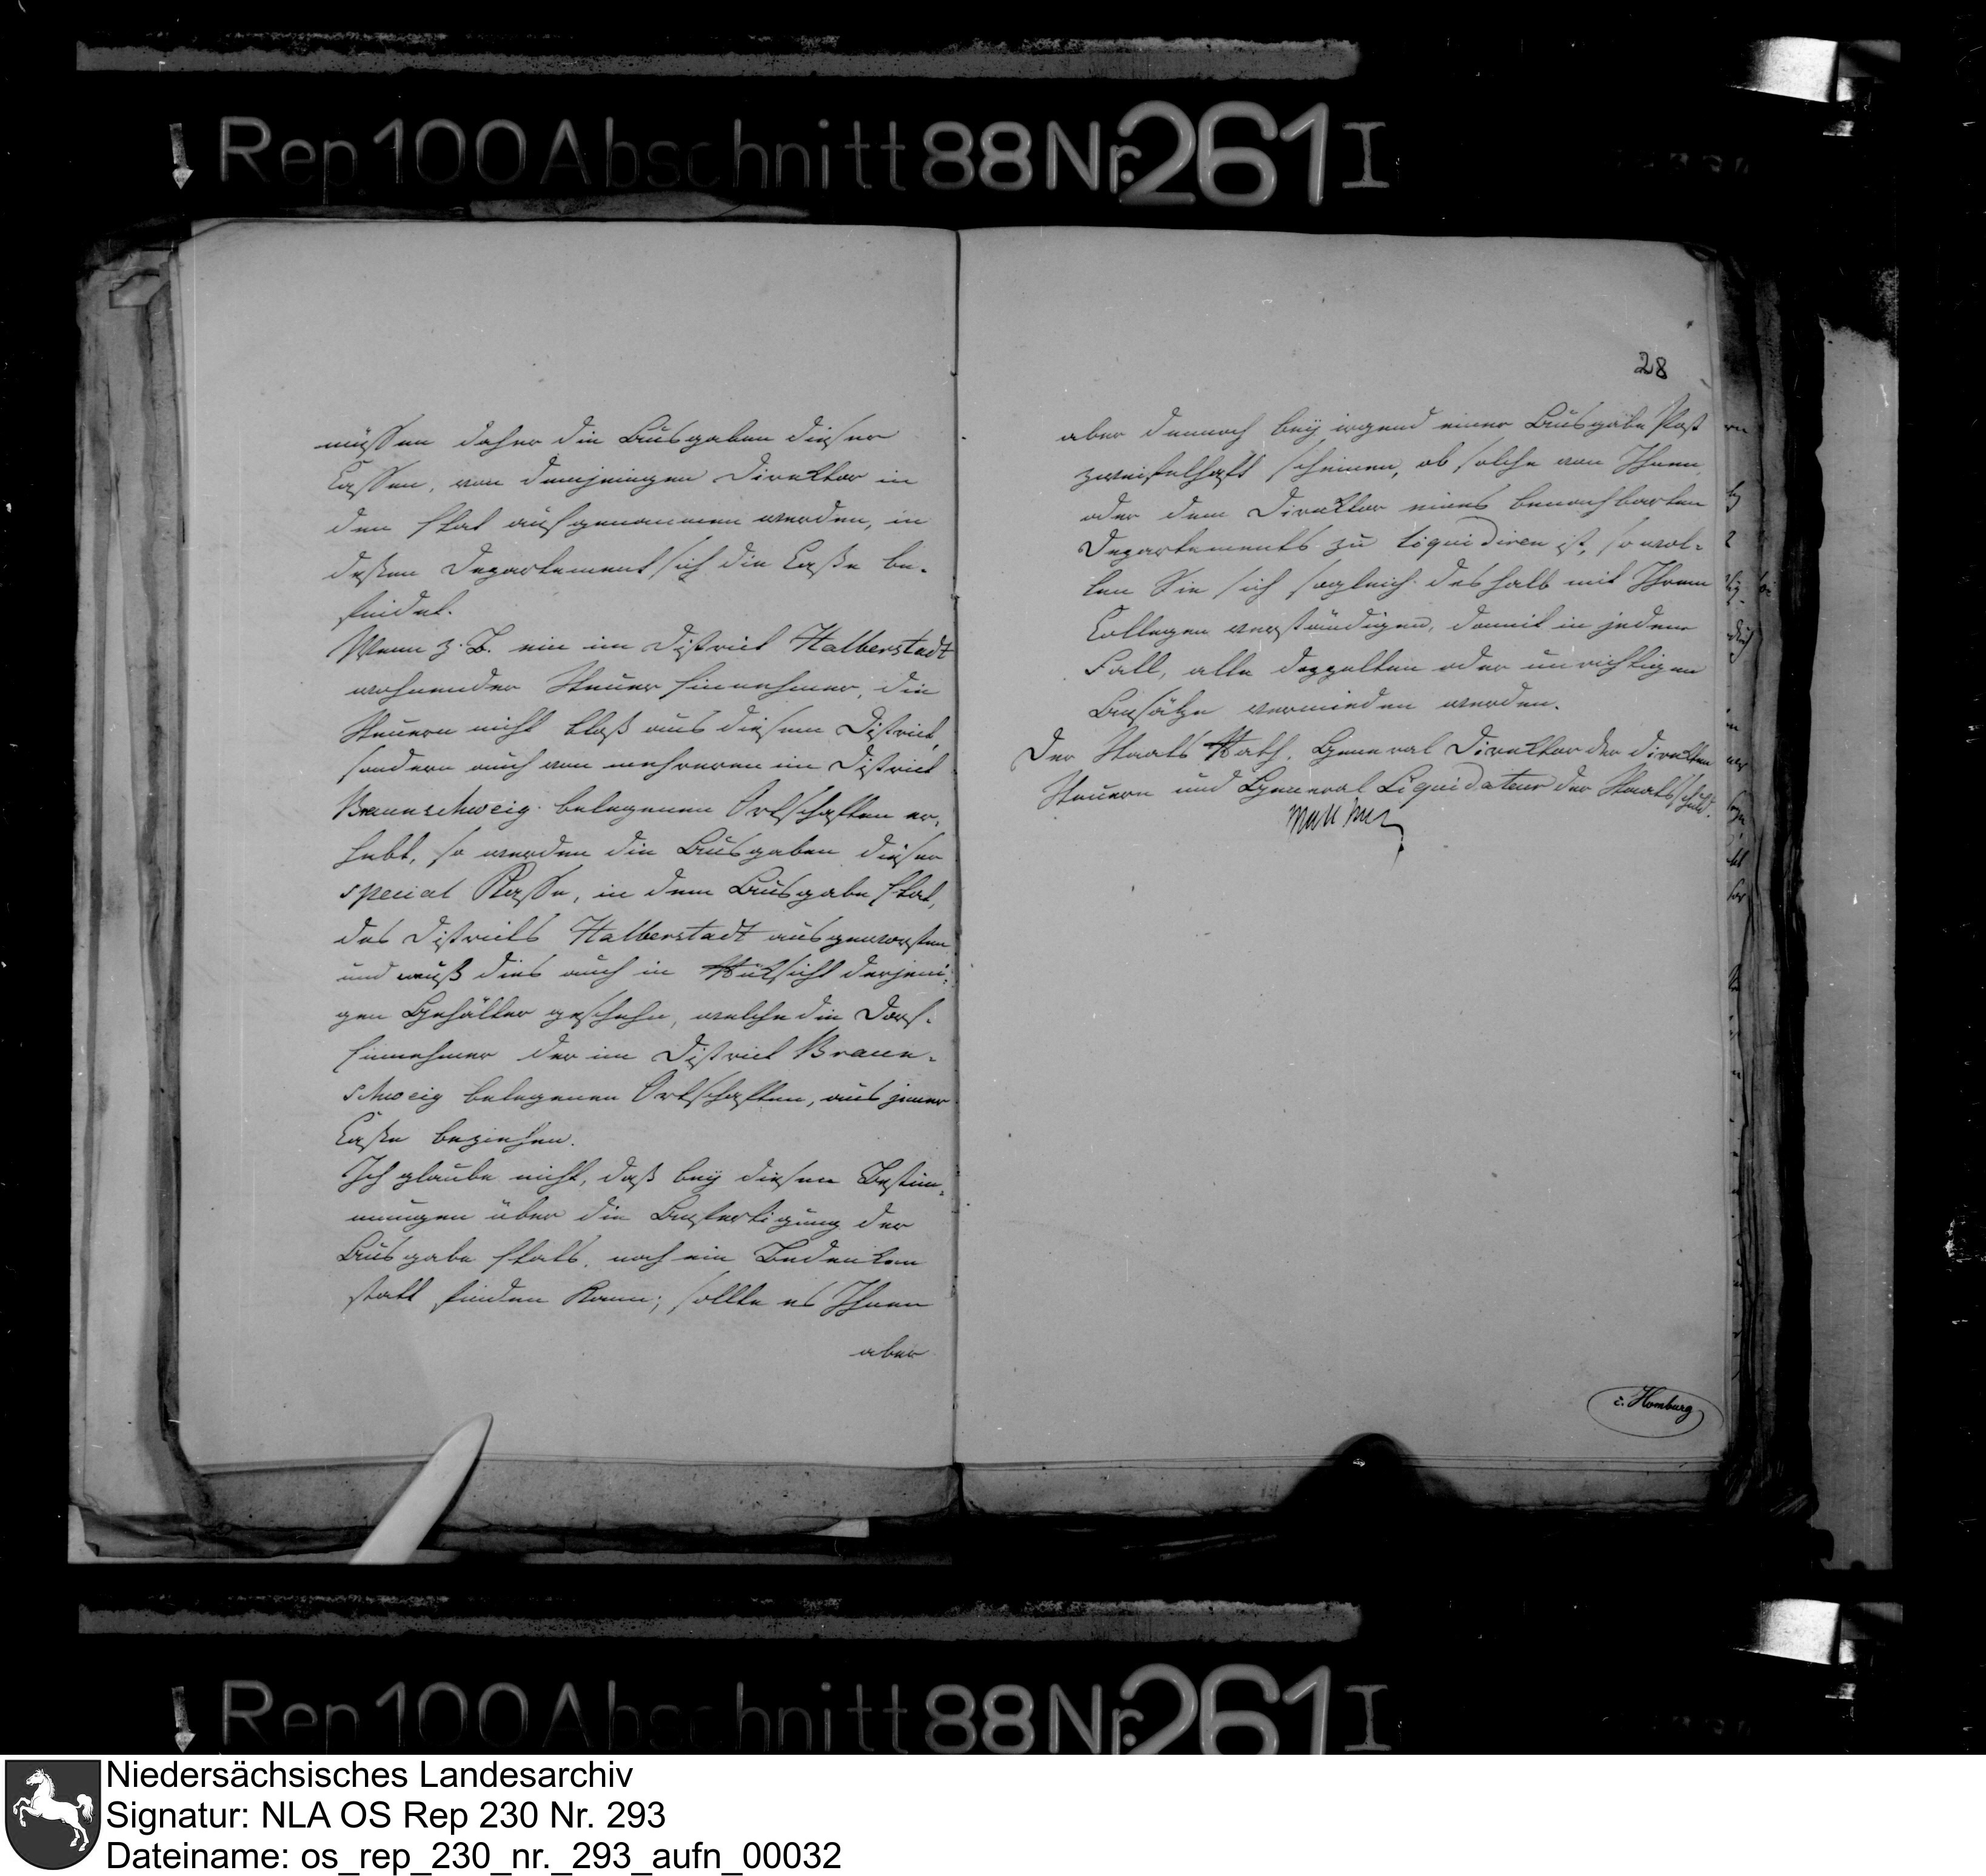 Rep 100 Abschnitt 88 Nr. 261 I
müssen daher die Ausgaben dieser
Cassen, von demjenigen Direktor in
den Etat aufgenommen werden, in
deßen Departement sich die Caße be-
findet.
Wenn z. B. ein im District Halberstadt
wohnender Steuer Einnehmer, die
Steuern nicht bloß aus diesem District,
sondern auch von mehreren im District
Braunschweig belegenen Ortschaften er-
hebt, so werden die Ausgaben dieser
special Kasse, in dem Ausgabe Etat,
des Districts Halberstadt ausgeworfen
und muß dies auch in Rüksicht derjeni-
gen Gehälter geschehn, welche die Dorf-
Einnehmer der im District Braun-
schweig belegenen Ortschaften, aus jener
Caße beziehen.
Ich glaube nicht, daß bey diesen Bestim-
mungen über die Anfertigung der
Ausgabe Etats, noch ein Bedenken
statt finden kann; sollte es Ihnen
aber
28
aber dennoch bey irgend einer Ausgabe Post
zweifelhaft scheinen, ob solche von Ihnen
oder dem Direktor eines benachbarten
Departements zu liquidiren ist, so wol-
len Sie sich sogleich deshalb mit Ihrem
Collegen verständigen, damit in jedem
Fall, alle doppelten oder unrichtigen
Ansätze vermieden werden.
Der Staats Rath, General Direktor der direkten
Steuern und General Liquidateur der Staatsschuld.
Malchus
z. Homburg
Rep 100 Abschnitt 88 Nr. 261 I
Niedersächsisches Landesarchiv
Signatur: NLA OS Rep 230 Nr. 293
Dateiname: os_rep_230_nr._293_aufn_00032